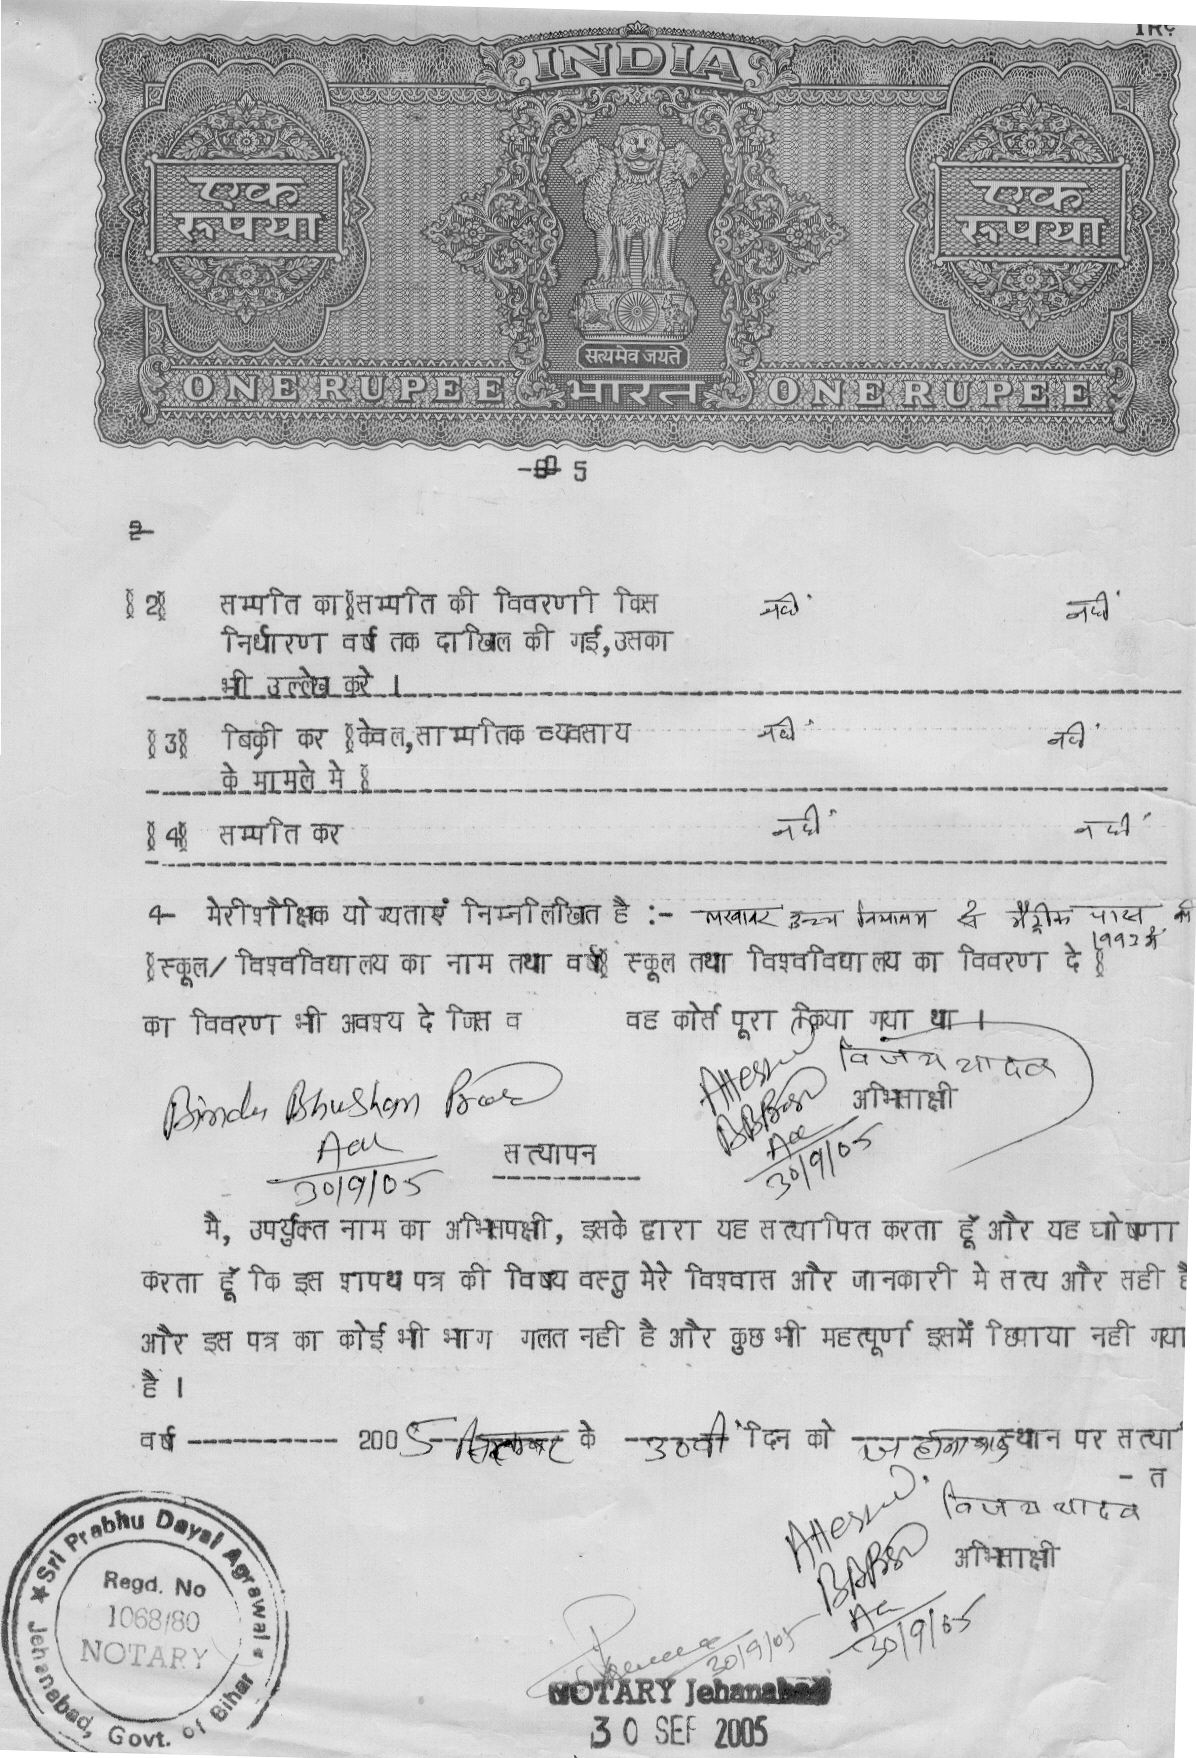 INDIA
एक रूपया
एक रूपया
सत्यमेव जयते
ONE RUPEE भारत ONE RUPEE
5
2
§2§ सम्पति का§सम्पति की विवरणी किस नहीं नहीं
निर्धारण वर्ष तक दाखिल की गई,उसका
भी उल्लेख करे ।
§3§ बिक्री कर §केवल,साम्पतिक व्यवसाय नहीं नहीं
के मामले मे §
§4§ सम्पति कर नहीं नहीं
4- मेरीशैक्षिक योग्यताएं निम्नलिखित है :- उच्च से मैट्रीक पास
1992 में
§स्कूल/ विश्वविद्यालय का नाम तथा वर्ष§ स्कूल तथा विश्वविद्यालय का विवरण दे §
का विवरण भी अवश्य दे जिस व वह कोर्स पूरा किया गया था ।
Bindu Bhushan Prasad
Adv
30/9/05
Attested
BBPrasad
Adv
30/9/05
विजय यादव
अभिसाक्षी
सत्यापन
मै, उपर्युक्त नाम का अभिसपक्षी, इसके द्वारा यह सत्यापित करता हूँ और यह घोषणा
करता हूँ कि इस शपथ पत्र की विषय वस्तु मेरे विश्वास और जानकारी मे सत्य और सही है
और इस पत्र का कोई भी भाग गलत नही है और कुछ भी महत्पूर्ण इसमें छिपाया नही गया
है ।
वर्ष ---------- 2005 सितम्बर के 30वीं दिन को जहानाबाद स्थान पर सत्या
- त
विजय यादव
अभिसाक्षी
Attested
BBPrasad
Adv
30/9/05
30/9/05
NOTARY Jehanabad
30 SEP 2005
Sri Prabhu Dayal Agrawal
Regd. No
1068/80
NOTARY
Jehanabad, Govt. of Bihar